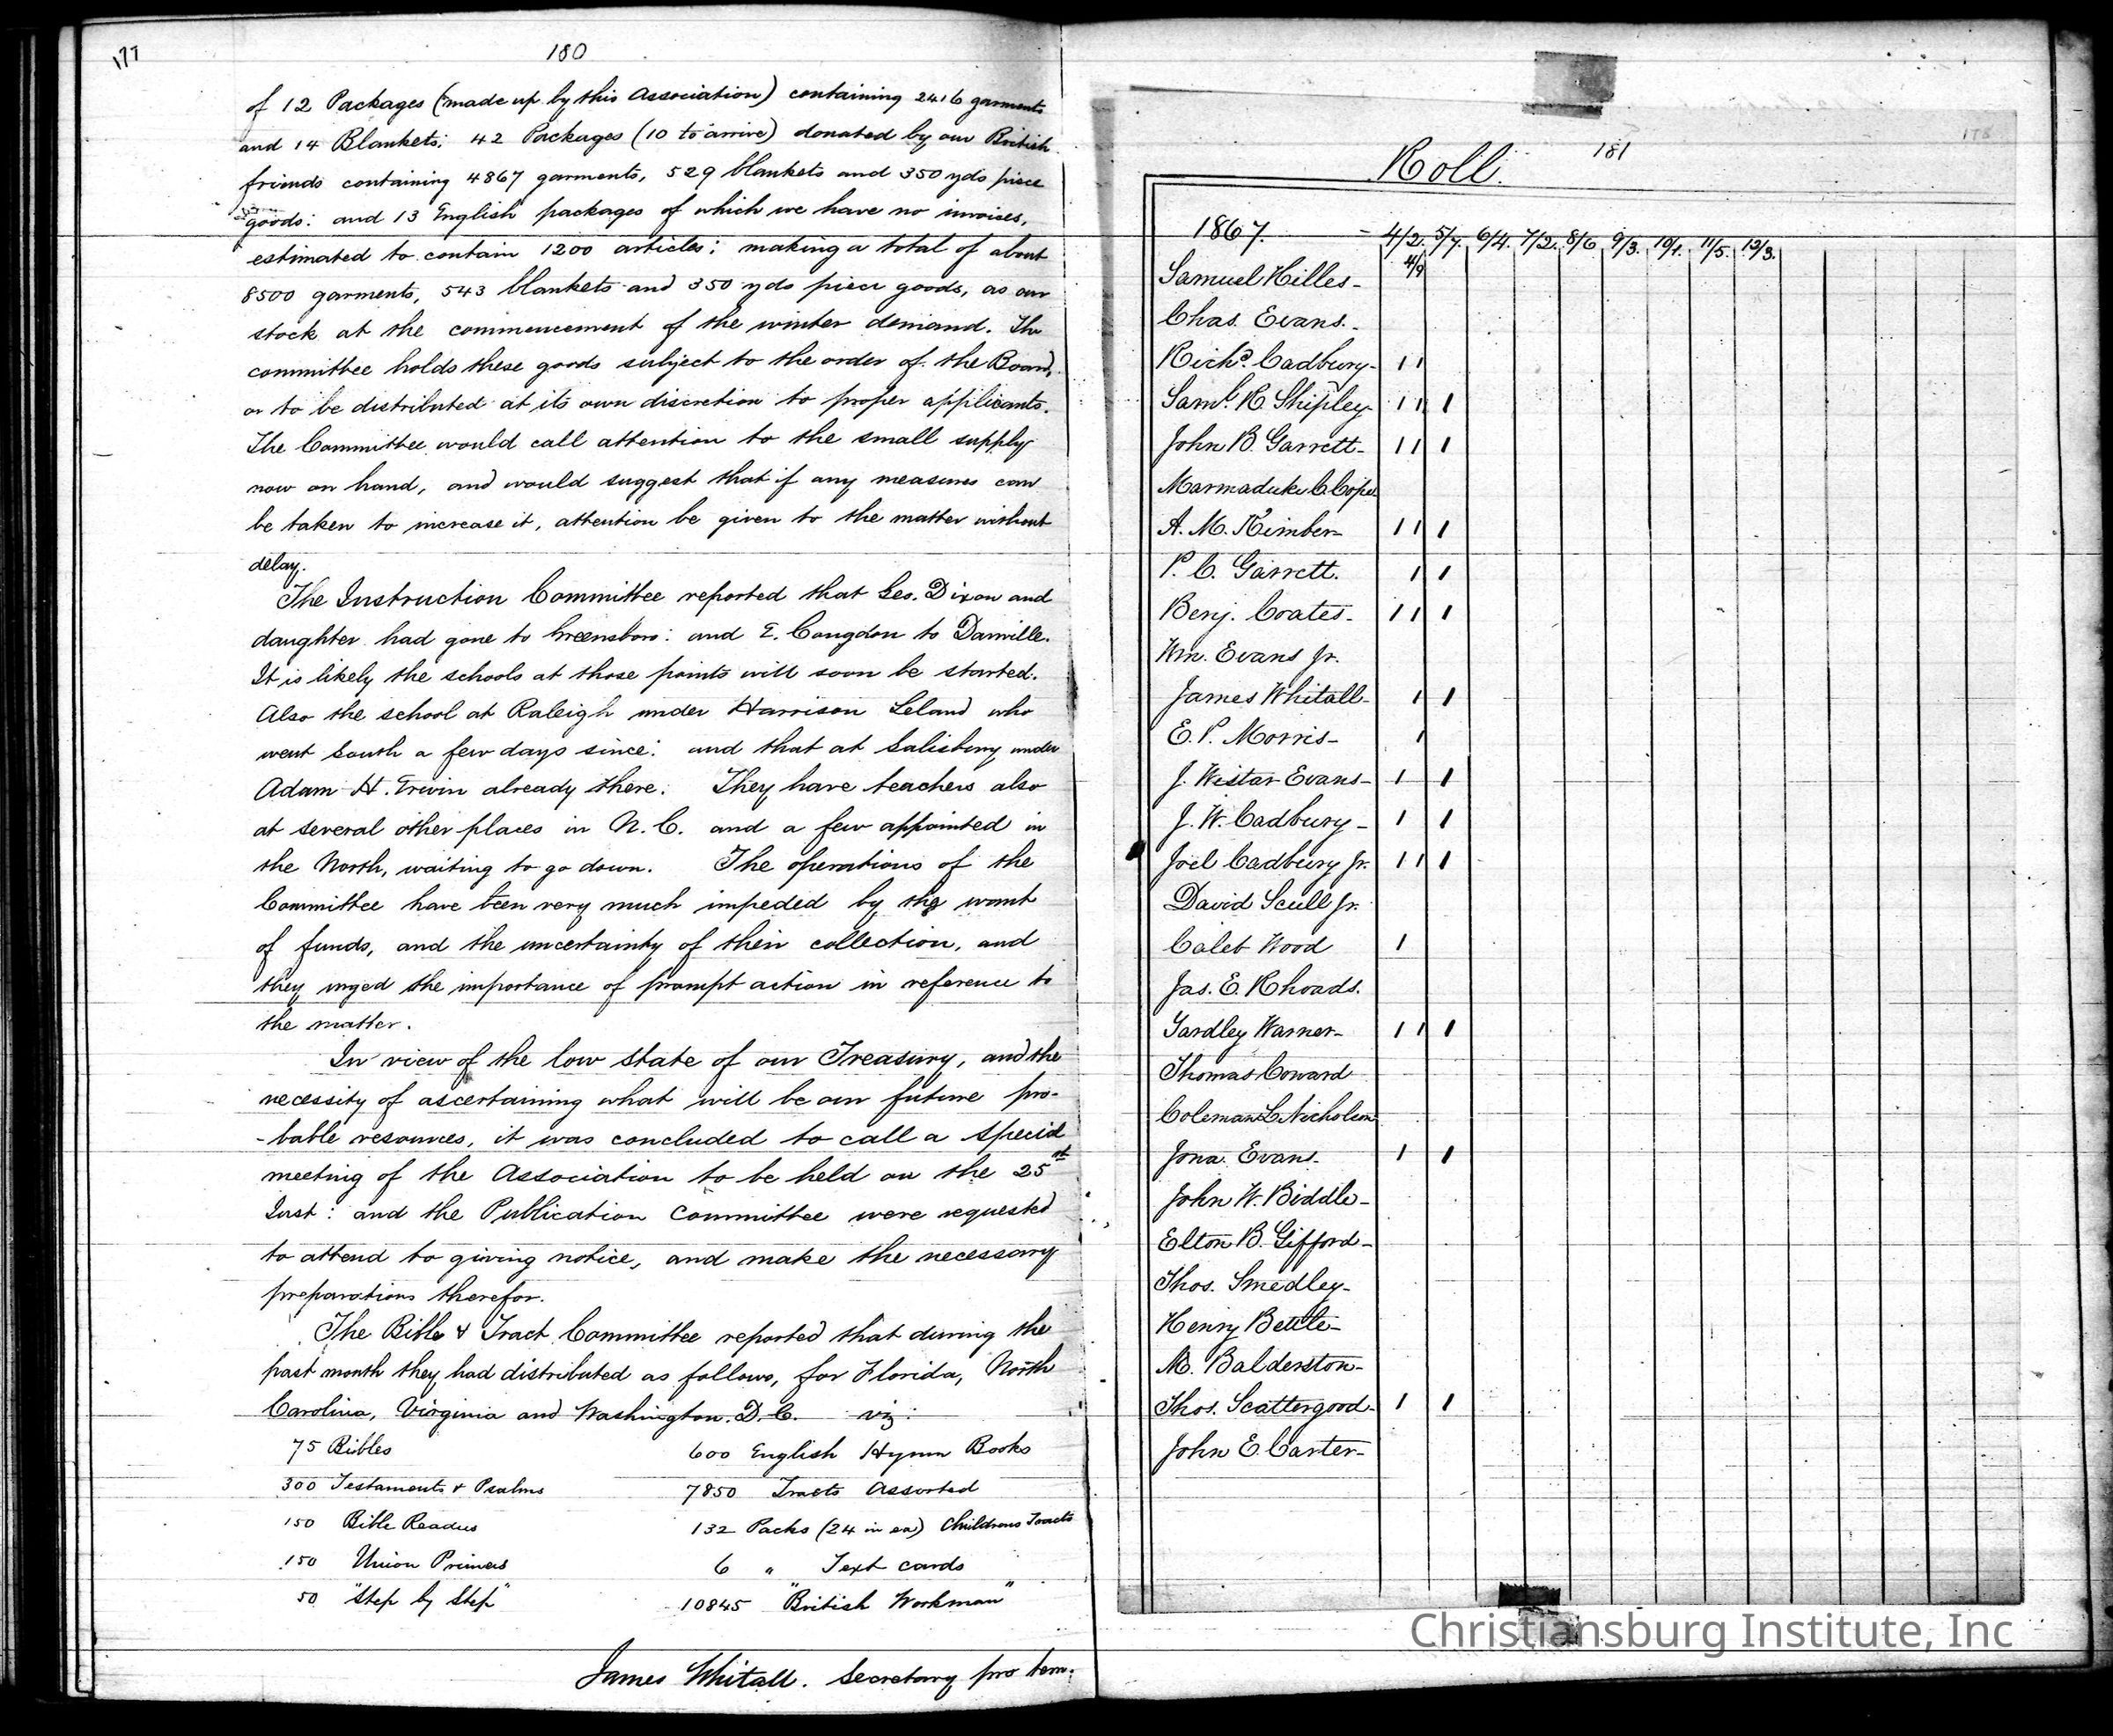 177
180
of 12 Packages (made up by this Association) containing 2416 garments
and 14 Blankets; 42 Packages (10 to arrive) donated by our British
friends containing 4867 garments, 529 blankets and 350 yds piece
goods: and 13 English packages of which we have no invoices,
estimated to contain 1200 articles; making a total of about
8500 garments, 543 blankets and 350 yds piece goods, as our
stock at the commencement of the winter demand. The
committee holds these goods subject to the order of the Board,
or to be distributed at its own discretion to proper applicants.
The Committee would call attention to the small supply
now on hand, and would suggest that if any measures can
be taken to increase it, attention be given to the matter without
delay.
The Instruction Committee reported that Geo. Dixon and
daughter had gone to Greensboro: and E. Congdon to Danville.
It is likely the schools at those points will soon be started.
Also the school at Raleigh under Harrison Leland who
went South a few days since: and that at Salisbury under
Adam H. Erwin already there. They have teachers also
at several other places in N.C. and a few appointed in
the North, waiting to go down. The operations of the
Committee have been very much impeded by the want
of funds, and the uncertainty of their collection, and
they urged the importance of prompt action in reference to
the matter.
In view of the low state of our Treasury, and the
necessity of ascertaining what will be our future pro-
-bable resources, it was concluded to call a special
meeting of the Association to be held on the 25th
Inst: and the Publication Committee were requested
to attend to giving notice, and make the necessary
preparations therefor.
The Bible & Tract Committee reported that during the
past month they had distributed as follows, for Florida, North
Carolina, Virginia and Washington. D.C. viz:
75 Bibles 600 English Hymn Books
300 Testaments & Psalms 7850 Tracts Assorted
150 Bible Readers 132 Packs (24 in ea) Childrens Tracts
150 Union Primers 6 " Text cards
50 "Step by Step" 10845 "British Workman"
James Whitall. Secretary pro tem.
178
Roll. 181
1867. 4/2. 5/7. 6/4. 7/2. 8/6. 9/3. 10/1. 11/5. 12/3.
Samuel Hilles- 4/9
Chas. Evans.-
Richd. Cadbury- 1 1
Saml. R. Shipley- 1 1 1
John B. Garrett- 1 1 1
Marmaduke C. Cope
A. M. Kimber- 1 1 1
P. C. Garrett. 1 1
Benj. Coates- 1 1 1
Wm. Evans Jr.
James Whitall- 1 1
E. P. Morris- 1
J. Wistar Evans- 1 1
J. W. Cadbury- 1 1
Joel Cadbury Jr. 1 1 1
David Scull Jr.
Caleb Wood 1
Jas. E. Rhoads.
Yardley Warner- 1 1 1
Thomas Conard
Coleman L Nicholson
Jona. Evans- 1 1
John W. Biddle-
Elton B. Gifford-
Thos. Smedley-
Henry Bettle-
M. Balderston-
Thos. Scattergood- 1 1
John E. Carter-
Christiansburg Institute, Inc